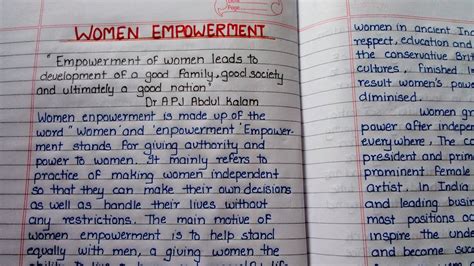 Date
Page
WOMEN EMPOWERMENT
" Empowerment of women leads to
development of a good family, good society
and ultimately a good nation"
Dr A.P.J Abdul Kalam
Women enpowerment is made up of the
word "Women' and 'enpowerment' 'Empower-
ment stands for giving authority and
power to women. It mainly refers to
practice of making women independent
so that they can make their own decisions
as well as handle their lives without
any restrictions. The main motive of
women empowerment is to help stand
equally with men, a giving women the
women in ancient Ind
respect, education and
the conservative Brit
cultures, finished
result women's powe
diminised.
Women gr
power after indepen
everywhere, The co
president and prim
prominent female
artist. In India
and leading busin
most positions oc
inspire the under
and become succe